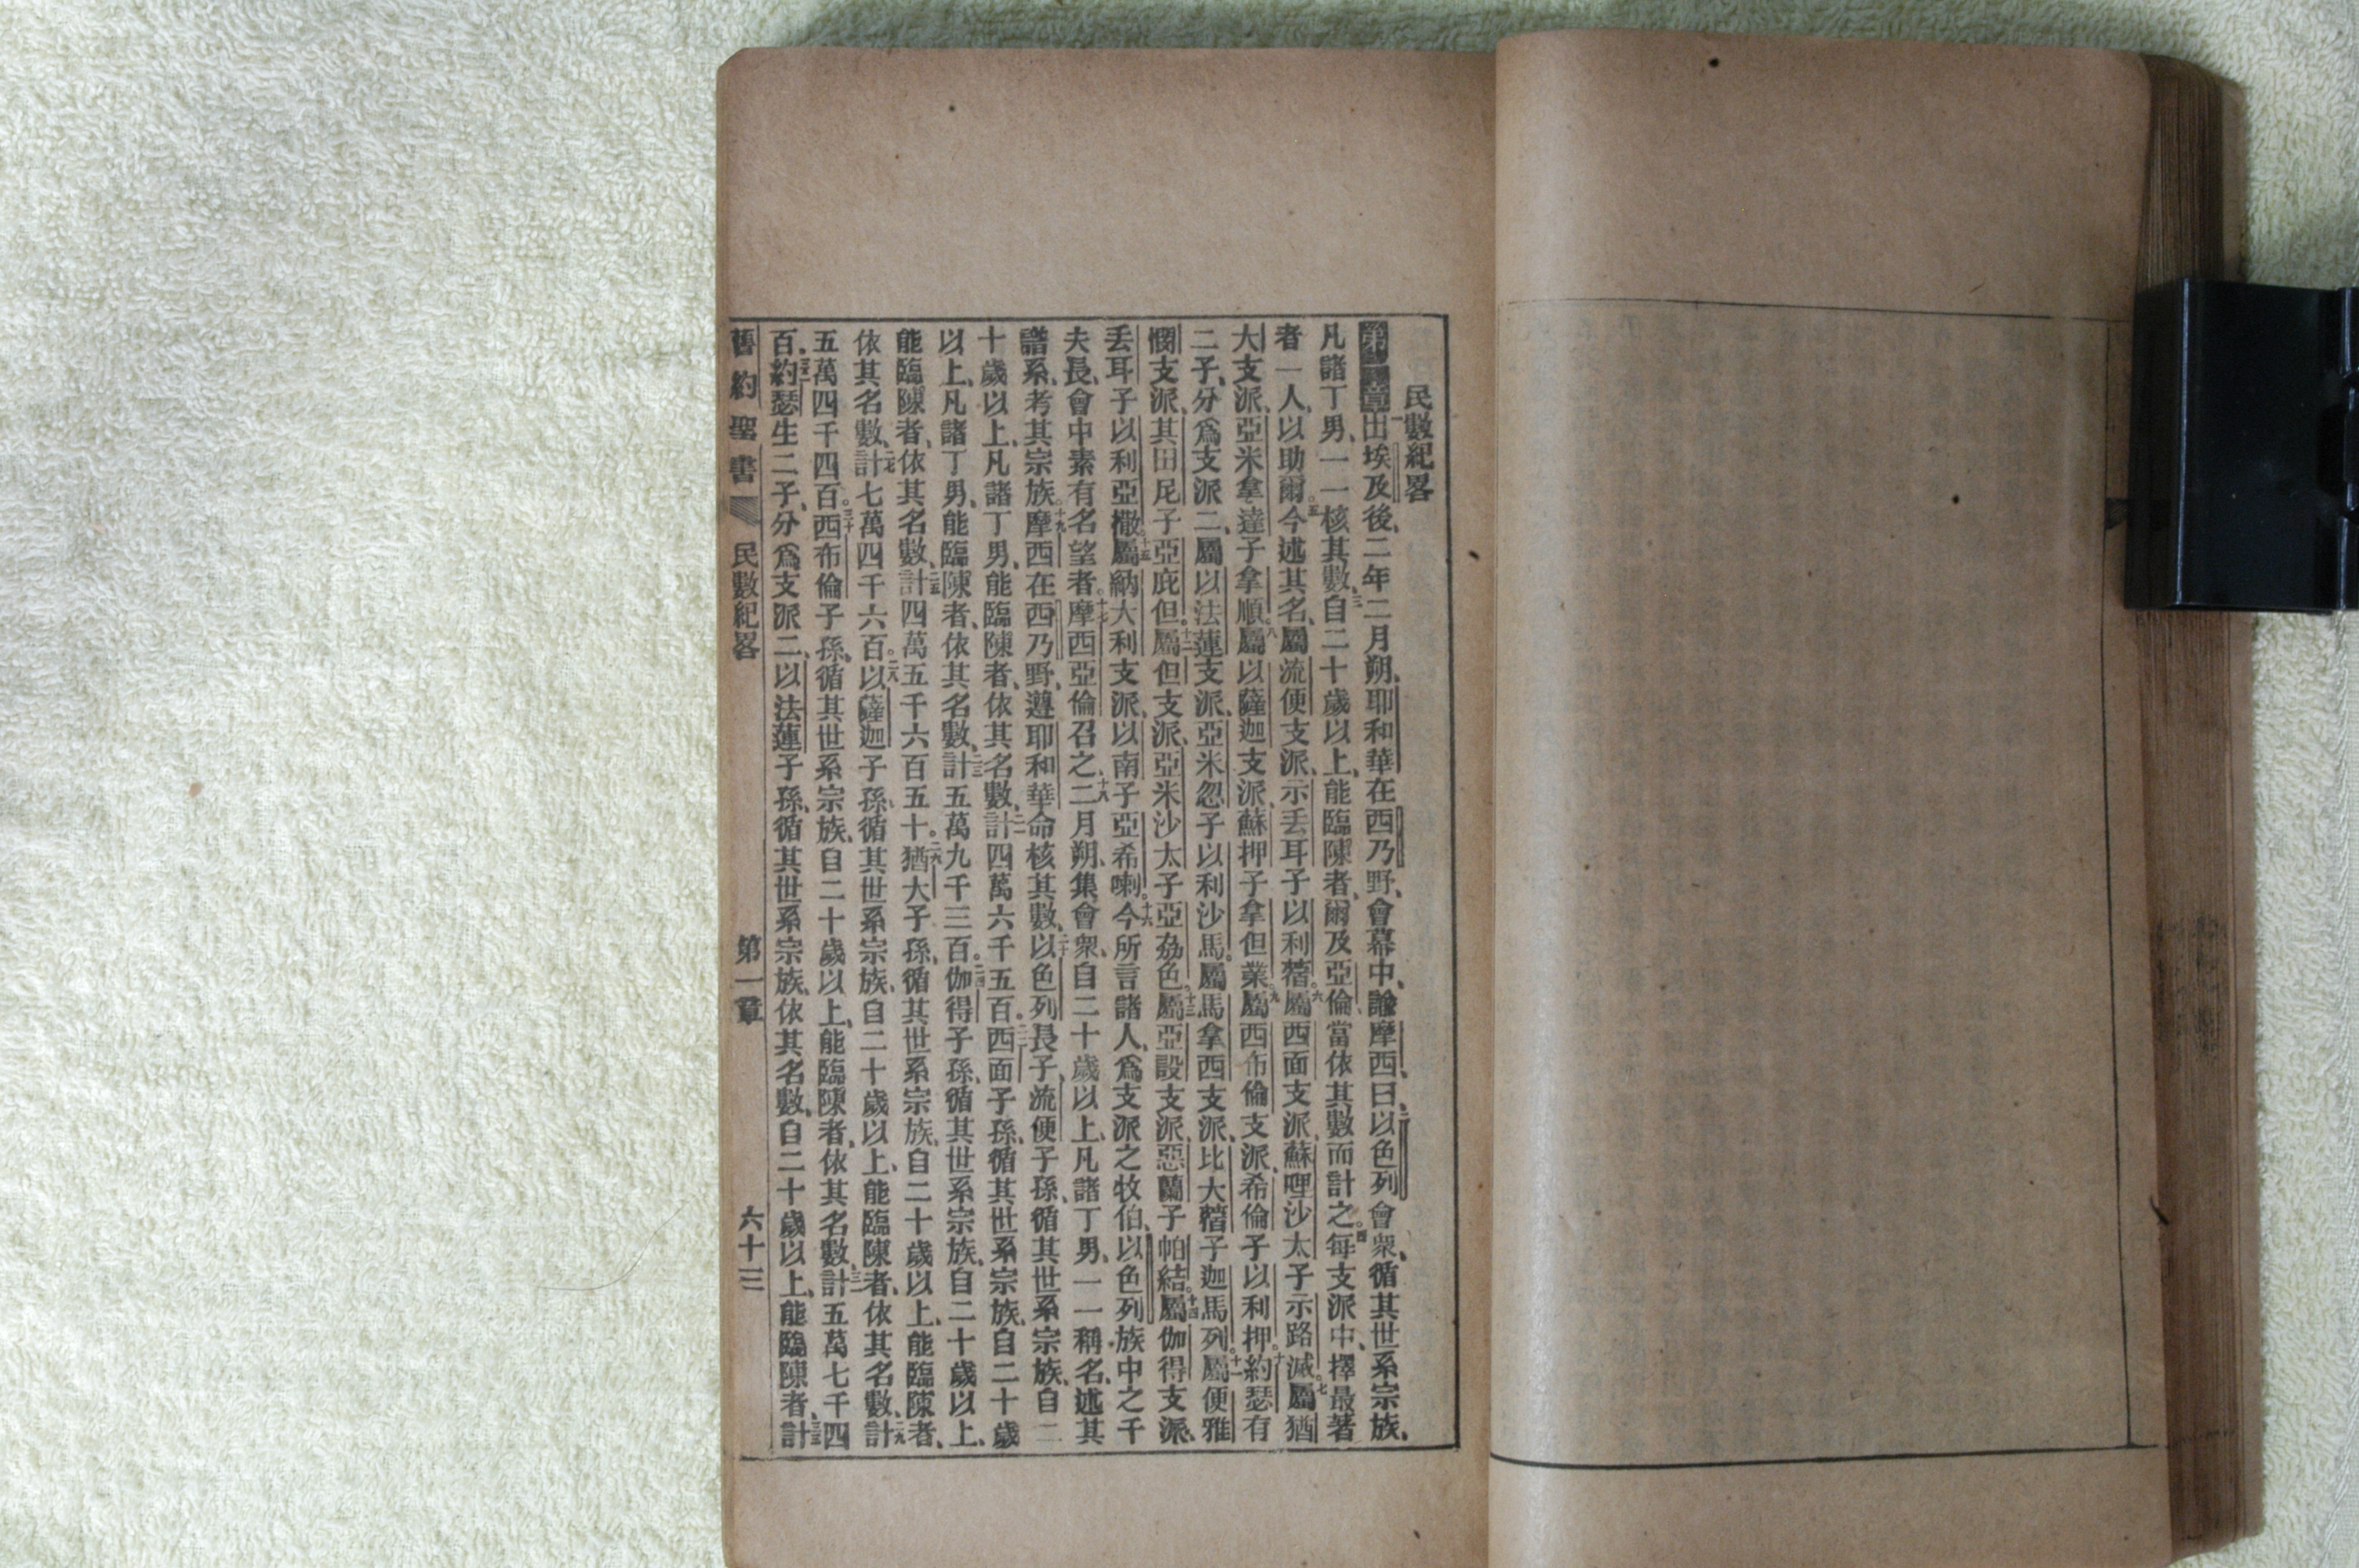 民數紀畧
第一章 一出埃及後、二年二月朔、耶和華在西乃野、會幕中、諭摩西曰、二以色列會衆、循其世系宗族、
凡諸丁男、一一核其數、三自二十歲以上、能臨陳者、爾及亞倫、當依其數而計之。四每支派中、擇最著
者一人、以助爾。五今述其名、屬流便支派、示丟耳子以利蓿。六屬西面支派、蘇哩沙太子示路滅。七屬猶
大支派、亞米拿達子拿順。八屬以薩迦支派、蘇押子拿但業。九屬西布倫支派、希倫子以利押。十約瑟有
二子、分爲支派二、屬以法蓮支派、亞米忽子以利沙馬。屬馬拿西支派、比大蓿子迦馬列。十一屬便雅
憫支派、其田尼子亞庇但。十二屬但支派、亞米沙太子亞希色。十三屬亞設支派、惡蘭子帕結。十四屬伽得支派、
丟耳子以利亞撒。十五屬納大利支派、以南子亞希喇。十六今所言諸人、爲支派之牧伯、以色列族中之千
夫長、會中素有名望者。十七摩西亞倫召之、十八二月朔、集會衆、自二十歲以上、凡諸丁男、一一稱名、述其
譜系、考其宗族。十九摩西在西乃野、遵耶和華命核其數、二十以色列長子、流便子孫、循其世系宗族、自二
十歲以上、凡諸丁男、能臨陳者、依其名數、二一計四萬六千五百。二二西面子孫、循其世系宗族、自二十歲
以上、凡諸丁男、能臨陳者、依其名數、二三計五萬九千三百。二四伽得子孫、循其世系宗族、自二十歲以上、
能臨陳者、依其名數、二五計四萬五千六百五十。二六猶大子孫、循其世系宗族、自二十歲以上、能臨陳者、
依其名數、二七計七萬四千六百。二八以薩迦子孫、循其世系宗族、自二十歲以上、能臨陳者、依其名數、二九計
五萬四千四百。三十西布倫子孫、循其世系宗族、自二十歲以上、能臨陳者、依其名數、三一計五萬七千四
百、三二約瑟生二子、分爲支派二、以法蓮子孫、循其世系宗族、依其名數、自二十歲以上、能臨陳者、三三計
舊約聖書 民數紀畧 第一章 六十三